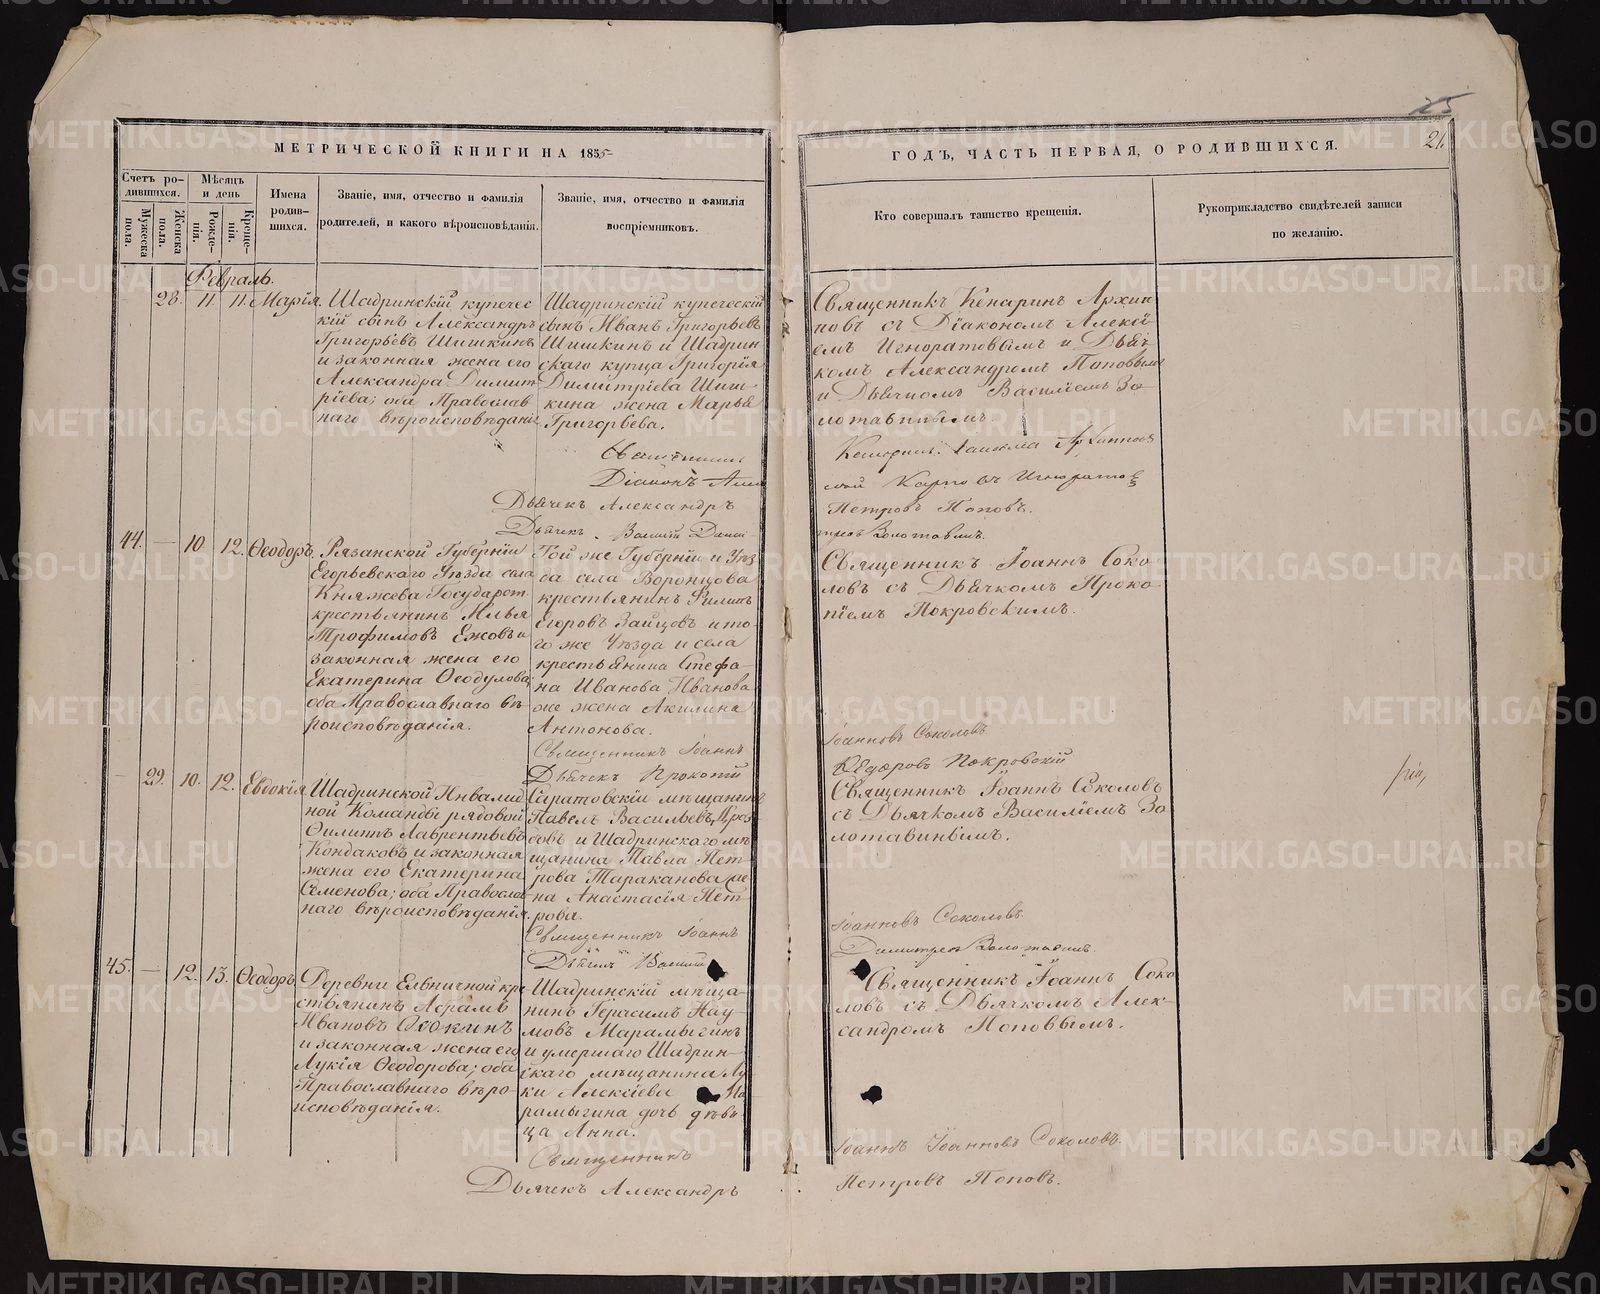 25
21.
МЕТРИЧЕСКОЙ КНИГИ НА 1855
ГОДЪ, ЧАСТЬ ПЕРВАЯ, О РОДИВШИХСЯ.
Счетъ ро-
дившихся.
Мужеска
пола.
Женска
пола.
Мѣсяцъ
и день
Рожде-
нія.
Креще-
нія.
Имена
родив-
шихся.
Званіе, имя, отчество и фамилія
родителей, и какого вѣроисповѣданія.
Званіе, имя, отчество и фамилія
воспріемниковъ.
Кто совершалъ таинство крещенія.
Рукоприкладство свидѣтелей записи
по желанію.
Февраль.
28. 11. 11. Марія
Шадринскій купечес
кій сынъ Александръ
Григорьевъ Шишкинъ
и законная жена его
Александра Димит
ріева; оба Православ
наго вѣроисповѣданія
Шадринскій купеческій
сынъ Иванъ Григорьевъ
Шишкинъ и Шадрин
скаго купца Григорія
Димитріева Шиш-
кина жена Марья
Григорьева.
Священникъ
Діаконъ
Дьячек Александръ
Дьячекъ Василій
Священникъ Кенаринъ Архип
повъ съ Діакономъ Алексі-
емъ Игноратовымъ и Дьяч-
комъ Александромъ Поповымъ
и Дьячкомъ Василіемъ Зо-
лотавинымъ.
Петровъ Поповъ.
Золотавинъ.
44. — 10 12. Ѳеодоръ.
Рязанской Губерніи
Егорьевскаго Уѣзда села
Княжева Государст.
крестьянинъ Илья
Трофимовъ Ежовъ и
законная жена его
Екатерина Ѳеодулова
оба Православнаго вѣ-
роисповѣданія.
Той же Губерніи и Уѣз
да села Воронцова
крестьянинъ Филипъ
Егоровъ Зайцовъ и то-
го же Уѣзда и села
крестьянина Стефа-
на Иванова Иванова
же жена Акилина
Антонова.
Священникъ Іоаннъ
Дьячекъ Прокопій
Священникъ Іоаннъ Соко-
ловъ съ Дьячкомъ Проко-
піемъ Покровскимъ.
Іоанновъ Соколовъ
Ѳедоровъ Покровскій
29. 10. 12. Евдокія
Шадринской Инвалид
ной Команды рядовой
Филиппъ Лаврентьевъ
Кондаковъ и законная
жена его Екатерина
Семенова; оба Православ
наго вѣроисповѣданія.
Саратовскій мѣщанинъ
Павелъ Васильевъ
и Шадринскаго мѣ
щанина Павла Пет
рова Тараканова же
на Анастасія Пет
рова.
Священникъ Іоаннъ
Дьячекъ Василій
Священникъ Іоаннъ Соколовъ
съ Дьячкомъ Василіемъ Зо
лотавинымъ.
Іоанновъ Соколовъ
Димитріевъ Золотавинъ.
45. — 12. 13. Ѳеодоръ
Деревни Ельничной кре
стьянинъ Абрамъ
Ивановъ Ѳокинъ
и законная жена его
Лукія Ѳеодорова; оба
Православнаго вѣро-
исповѣданія.
Шадринскій мѣща-
нинъ Герасимъ Нау
мовъ Марамыгинъ
и умершаго Шадрин-
скаго мѣщанина Лу
ки Алексіева Ма
рамыгина дочь дѣви-
ца Анна.
Священникъ
Дьячекъ Александръ
Священникъ Іоаннъ Соко
ловъ съ Дьячкомъ Алек-
сандромъ Поповымъ.
Іоаннъ Іоанновъ Соколовъ.
Петровъ Поповъ.
METRIKI.GASO-URAL.RU